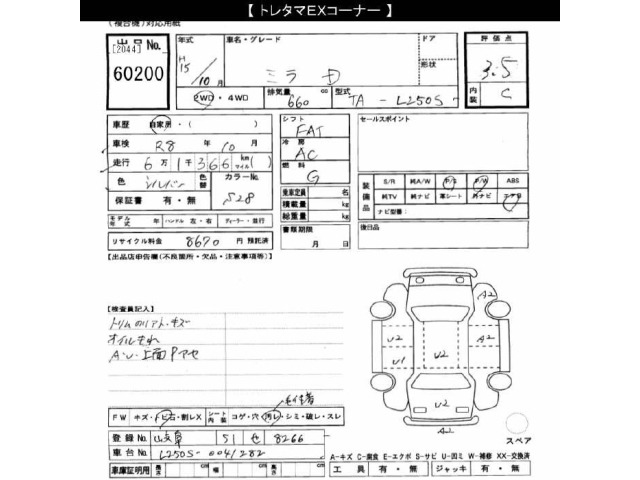 【 トレタマEXコーナー 】
(複合機)対応用紙
出品No.
[2044]
60200
年式
H15/10月
車名・グレード
ミラ D
ドア
形状
評価点
3.5
内装
C
2WD・4WD
排気量
660 cc
型式
TA - L250S -
車歴 自家用・( )
車検 R8年 10月
走行 6万1千366km(マイル)( )
色 シルバー
色替
カラーNo. S28
保証書 有・無
モデル年式 年
ハンドル 左・右
ディーラー・並行
リサイクル料金 8670 円 預託済
シフト
FAT
冷房
AC
燃料
G
乗車定員 名
積載量 kg
総重量 kg
書類期限 月 日
セールスポイント
装備品
S/R 純A/W P/S P/W ABS
純TV 純ナビ 革シート 外ナビ エアB
ナビ型番:
後日品
【出品店申告欄(不良箇所・欠品・注意事項等)】
【検査員記入】
トリム
キズ
オイルもれ
A2
A2
U2
U2
U1
U2
U2
A2
A2
スペア
FW キズ・トビ石・割レX
シート内装 コゲ・穴・汚レ・シミ・破レ・スレ
登録No. 岐阜 51 8266
車台No. L250S - 0041282
車庫証明用 長さ cm 幅 cm 高さ cm
A-キズ C-腐食 E-エクボ S-サビ U-凹ミ W-補修 XX-交換済
工具 有・無 ジャッキ 有・無